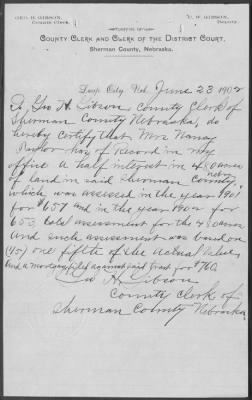 GEO. H. GIBSON,
County Clerk.
C. W. GIBSON,
Deputy.
OFFICE OF
COUNTY CLERK AND CLERK OF THE DISTRICT COURT,
Sherman County, Nebraska.
Loup City, Neb. June 23 1902
I, Geo H. Gibson, County Clerk of
Sherman County Nebraska, do
hereby certify that Mrs Nancy
has of record in my
office a half interest in acres
of land in said Sherman County Neb
which was assessed in the year 1901
for $657 and in the year 1902 for
653 total assessment for the acres
and such assessment was based on
(1/5) one fifth of the actual value,
and a mortgage filed against said tract for $760.
Geo H Gibson
County Clerk of
Sherman County Nebraska